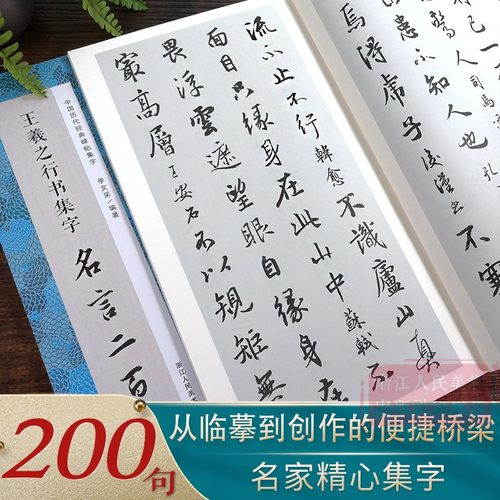 焉得虎子 後漢書 不
患不知人也
流不止不行 韓愈 不識廬山真
面目只緣身在此山中 蘇軾 不
畏浮雲遮望眼 自緣身在
最高層 王安石 不以規矩無
中国历代经典碑帖集字
李文采 / 编著
王羲之行书集字
名言二百
浙江人民美
浙江人民美
200句
从临摹到创作的便捷桥梁
名家精心集字